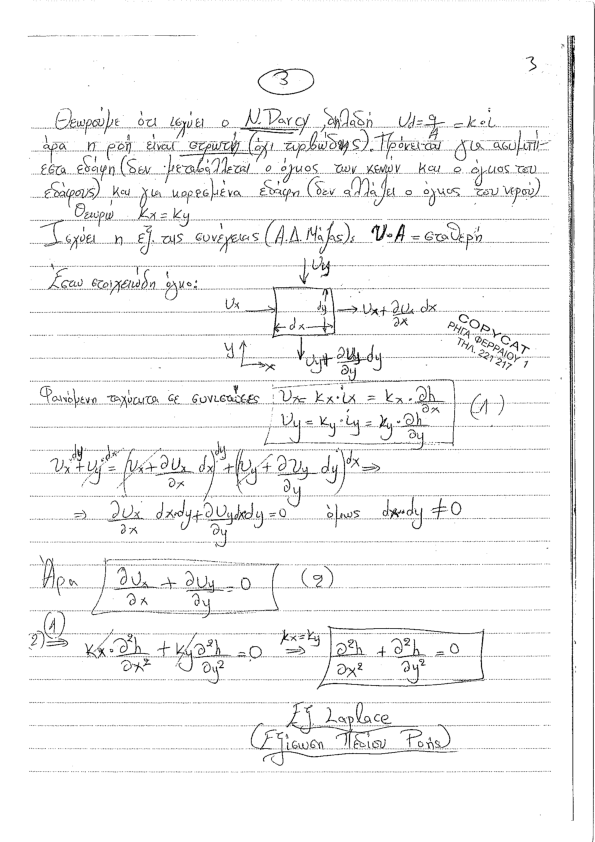 3
3
Θεωρούμε ότι ισχύει ο Ν. Darcy, δηλαδή υd = q/A = k·i
άρα η ροή είναι στρωτή (όχι τυρβώδης). Πρόκειται για ασυμπί-
εστα εδάφη (δεν μεταβάλλεται ο όγκος των κενών και ο όγκος του
εδάφους) και για κορεσμένα εδάφη (δεν αλλάζει ο όγκος του νερού)
Θεωρώ kx = ky
Ισχύει η εξ. της συνέχειας (Α.Δ. Μάζας): υ·A = σταθερή
Έστω στοιχειώδη όγκο:
υy
υx
dy
dx
υx + ∂υx/∂x dx
y
x
υy + ∂υy/∂y dy
COPYCAT
ΡΗΓΑ ΦΕΡΡΑΙΟΥ 1
ΤΗΛ. 221 217
Φαινόμενη ταχύτητα σε συνιστώσες
υx = kx·ix = kx·∂h/∂x
υy = ky·iy = ky·∂h/∂y
(1)
υx·dy + υy·dx = (υx + ∂υx/∂x dx)dy + (υy + ∂υy/∂y dy)dx ⇒
⇒ ∂υx/∂x dx·dy + ∂υy/∂y dxdy = 0 όμως dx·dy ≠ 0
Άρα ∂υx/∂x + ∂υy/∂y = 0 (2)
2) (1)⇒ kx·∂²h/∂x² + ky ∂²h/∂y² = 0 kx=ky ⇒ ∂²h/∂x² + ∂²h/∂y² = 0
Εξ Laplace
(Εξίσωση Πεδίου Ροής)